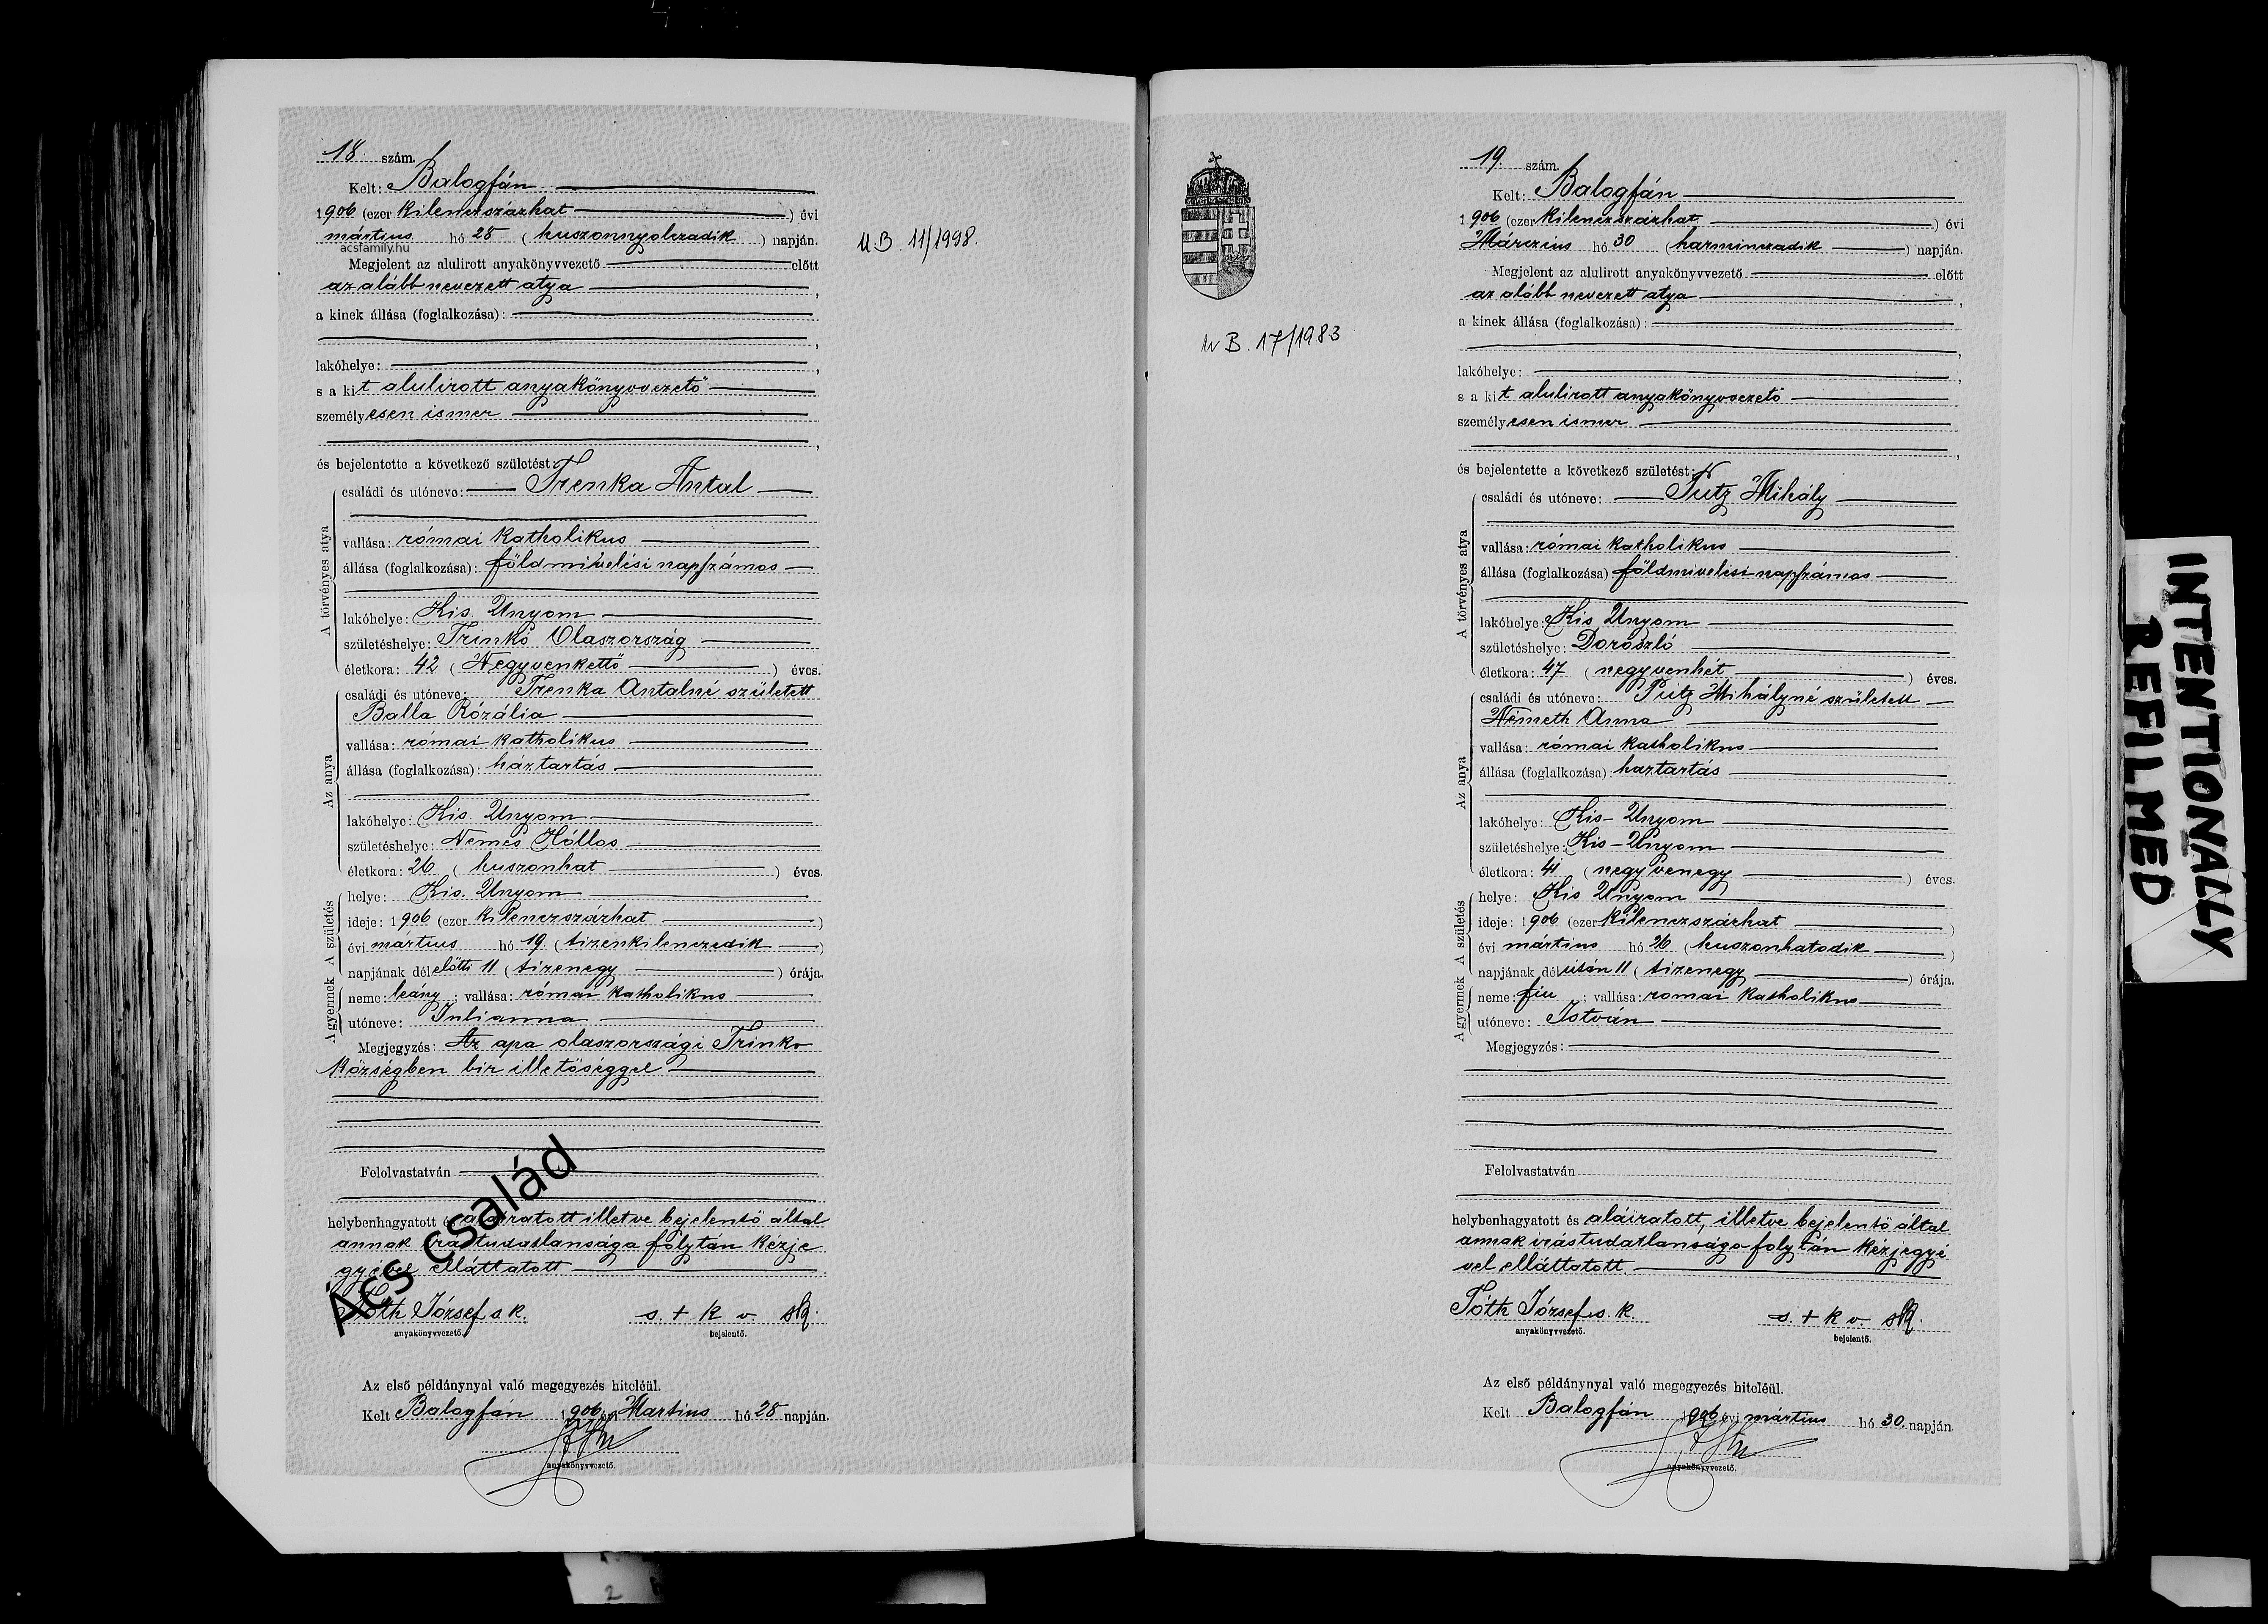 18. szám.
Kelt: Balogfán
1906 (ezer kilenczszázhat) évi
mártius hó 28 (huszonnyolczadik) napján.
acsfamily.hu
Megjelent az alulirott anyakönyvvezető előtt
az alább nevezett atya,
a kinek állása (foglalkozása):
lakóhelye:
s a kit alulirott anyakönyvvezető
személyesen ismer
és bejelentette a következő születést:
A törvényes atya
családi és utóneve: Trenka Antal
vallása: római katholikus
állása (foglalkozása): földmivelési napszámos
lakóhelye: Kis Unyom
születéshelye: Trinkó Olaszország
életkora: 42 (Negyvenkettő) éves.
Az anya
családi és utóneve: Trenka Antalné született
Balla Rózália
vallása: római katholikus
állása (foglalkozása): háztartás
lakóhelye: Kis. Unyom
születéshelye: Nemes Hóllos
életkora: 26 (huszonhat) éves.
A születés
helye: Kis. Unyom
ideje: 1906 (ezer kilenczszázhat)
évi martius hó 19 (tizenkilenczedik)
napjának délelőtti 11 (tizenegy) órája.
A gyermek
neme: leány; vallása: római katholikus
utóneve: Julianna
Megjegyzés: Az apa olaszországi Trinko
községben bir illetőséggel
Felolvastatván
helybenhagyatott és aláiratott illetve bejelentő által
annak irástudatlansága folytán kézje
gyével elláttatott
Tóth József s k.
anyakönyvvezető.
s. + k v. sk.
bejelentő.
Az első példánynyal való megegyezés hiteléül.
Kelt Balogfán 1906 évi Martius hó 28 napján.
anyakönyvvezető.
Ács család
U B. 11/1998.
U B. 17/1983
19. szám.
Kelt: Balogfán
1906 (ezer kilenczszázhat) évi
Márczius hó 30 (harminczadik) napján.
Megjelent az alulirott anyakönyvvezető előtt
az alább nevezett atya,
a kinek állása (foglalkozása):
lakóhelye:
s a kit alulirott anyakönyvvezető
személyesen ismer
és bejelentette a következő születést:
A törvényes atya
családi és utóneve: Putz Mihály
vallása: római katholikus
állása (foglalkozása): földmivelési napszámos
lakóhelye: Kis Unyom
születéshelye: Doroszló
életkora: 47 (negyvenhét) éves.
Az anya
családi és utóneve: Putz Mihályné született
Németh Anna
vallása: római katholikus
állása (foglalkozása): haztartás
lakóhelye: Kis-Unyom
születéshelye: Kis-Unyom
életkora: 41 (negyvenegy) éves.
A születés
helye: Kis Unyom
ideje: 1906 (ezer kilenczszázhat)
évi mártius hó 26 (huszonhatodik)
napjának délután 11 (tizenegy) órája.
A gyermek
neme: fiu; vallása: romai katholikus
utóneve: István
Megjegyzés:
Felolvastatván
helybenhagyatott és aláiratott, illetve bejelentő által
annak irástudatlansága folytán kézjegyé
vel elláttatott.
Tóth József s. k.
anyakönyvvezető.
s. + k v. sk.
bejelentő.
Az első példánynyal való megegyezés hiteléül.
Kelt Balogfán 1906 évi mártius hó 30. napján.
anyakönyvvezető.
INTENTIONALLY
REFILMED
2